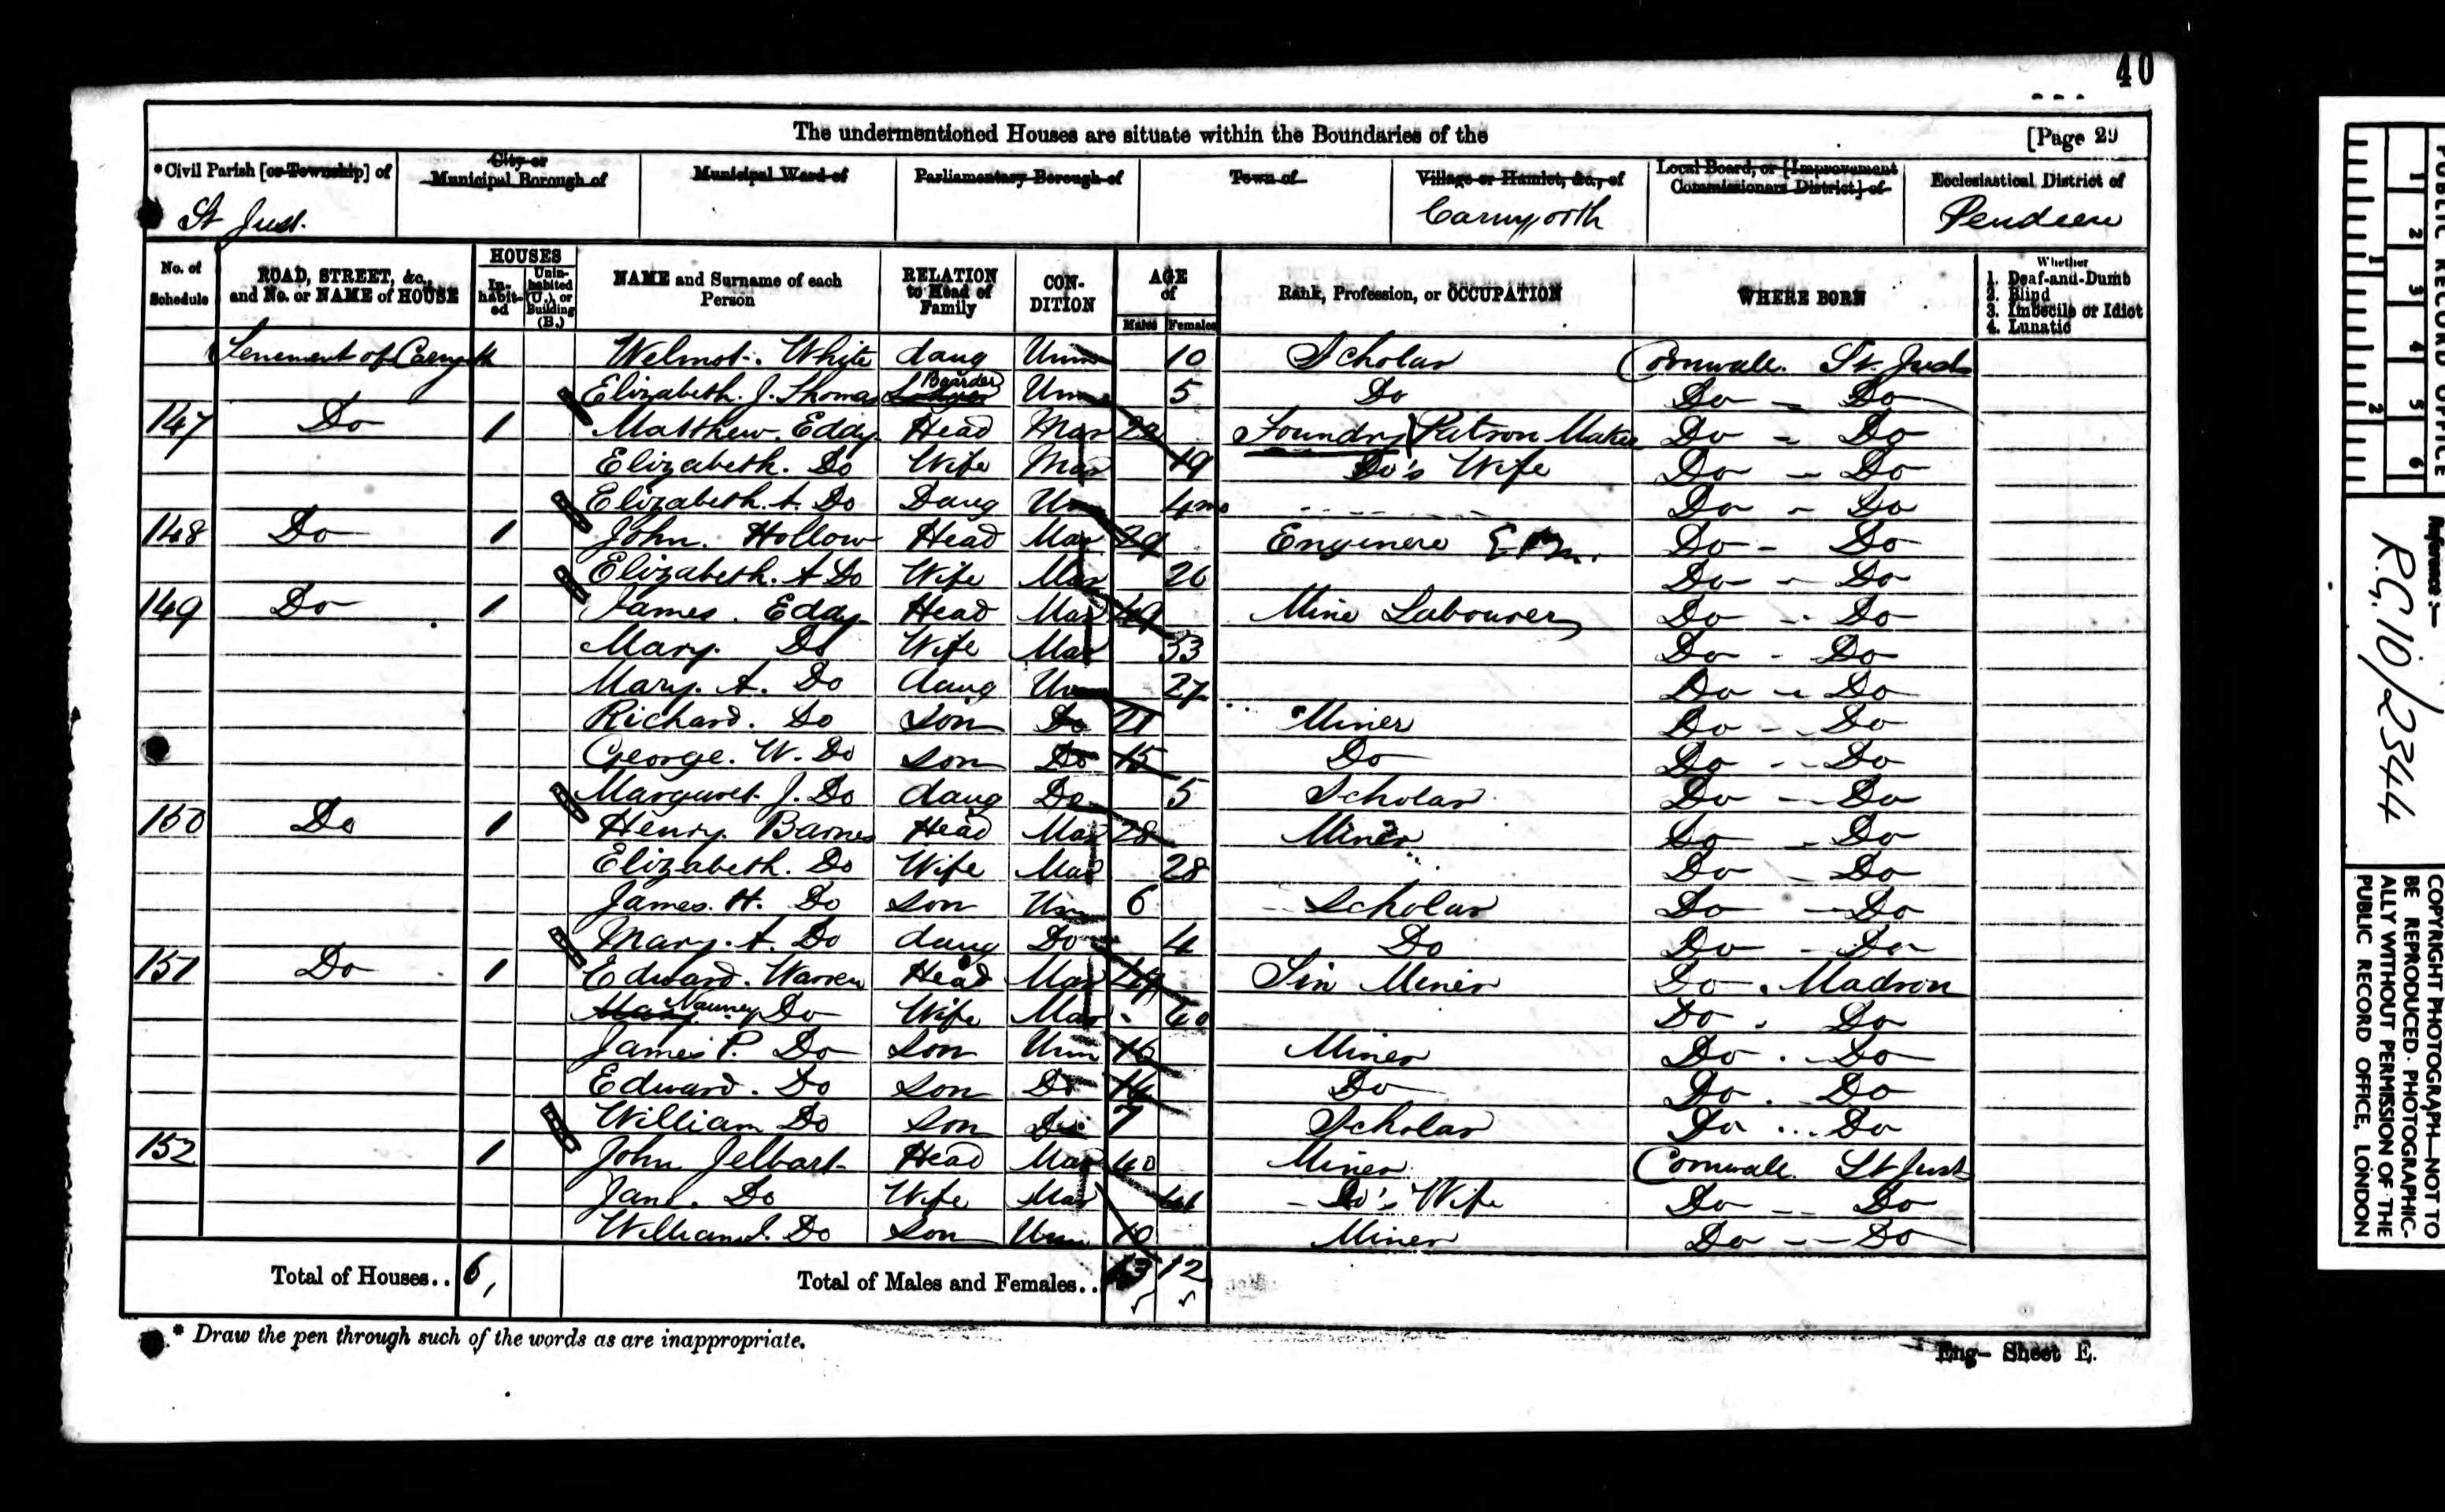 40
The undermentioned Houses are situate within the Boundaries of the [Page 29
*Civil Parish [or Township] of City or Municipal Borough of Municipal Ward of Parliamentary Borough of Town of Village or Hamlet, &c., of Local Board, or [Improvement Commissioners District] of Ecclesiastical District of
St Just. Carnyorth Pendeen
No. of Schedule ROAD, STREET, &c., and No. or NAME of HOUSE HOUSES Inhabited Uninhabited (U.), or Building (B.) NAME and Surname of each Person RELATION to Head of Family CONDITION AGE of Males Females Rank, Profession, or OCCUPATION WHERE BORN Whether 1. Deaf-and-Dumb 2. Blind 3. Imbecile or Idiot 4. Lunatic
Tenement of Welmot. White daug Unm 10 Scholar Cornwall. St. Just
Elizabeth. J. Thomas Boarder Unm 5 Do Do - Do
147 Do 1 Matthew. Eddy Head Mar Foundry Patron Maker Do - Do
Elizabeth. Do Wife Mar 19 Do's Wife Do - Do
Elizabeth. A. Do Daug Un 4mo Do - Do
148 Do 1 John. Hollow Head Mar 29 Enginere Do - Do
Elizabeth. A Do Wife Mar 26 Do - Do
149 Do 1 James. Eddy Head Mar 49 Mine Labourer Do - Do
Mary. Do Wife Mar 53 Do - Do
Mary. A. Do daug Un 27 Do - Do
Richard. Do Son Do 21 Miner Do - Do
George. W. Do Son Do 15 Do Do - Do
Margaret. J. Do daug Do 5 Scholar Do - Do
150 Do 1 Henry Barnes Head Mar 28 Miner Do - Do
Elizabeth. Do Wife Mar 28 Do - Do
James. H. Do Son Un 6 Scholar Do - Do
Mary. A. Do daug Do 4 Do Do - Do
151 Do 1 Edward. Warren Head Mar Tin Miner Do. Madron
Nanney Do Wife Mar 40 Do. Do
James P. Do Son Unm 16 Miner Do. Do
Edward. Do Son Do 14 Do Do. Do
William Do Son Do 7 Scholar Do ... Do
152 1 John Jelbart Head Mar 40 Miner Cornwall St Just
Jane. Do Wife Mar 41 Do's Wife Do - Do
William J. Do Son Unm 10 Miner Do - Do
Total of Houses.. 6, Total of Males and Females.. 13 12
* Draw the pen through such of the words as are inappropriate.
Eng- Sheet E.
PUBLIC RECORD OFFICE
1 2 3 4 5 6
1 2
Reference :-
R.G. 10/2344
COPYRIGHT PHOTOGRAPH—NOT TO BE REPRODUCED PHOTOGRAPHICALLY WITHOUT PERMISSION OF THE PUBLIC RECORD OFFICE, LONDON